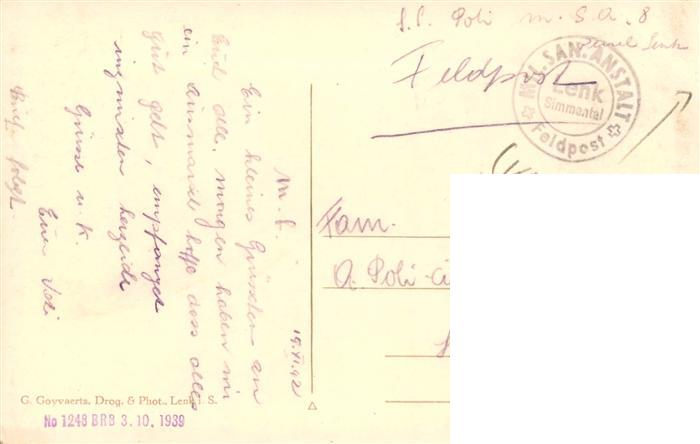 S. S. Poli M.S.A. 8
Lenk
Feldpost
MIL. SAN. ANSTALT
Lenk
Simmental
Feldpost
Fam.
A. Poli
19.XI.42
M. L.
Ein kleines Grüsschen an
Euch alle, morgen haben wir
ein Ausmarsch hoffe dass alles
gut geht, empfanget
herzliche
Grüsse u. K.
Euer
Brief folgt.
G. Goyvaerts, Drog. & Phot., Lenk i. S.
No 1248 BRB 3. 10. 1939